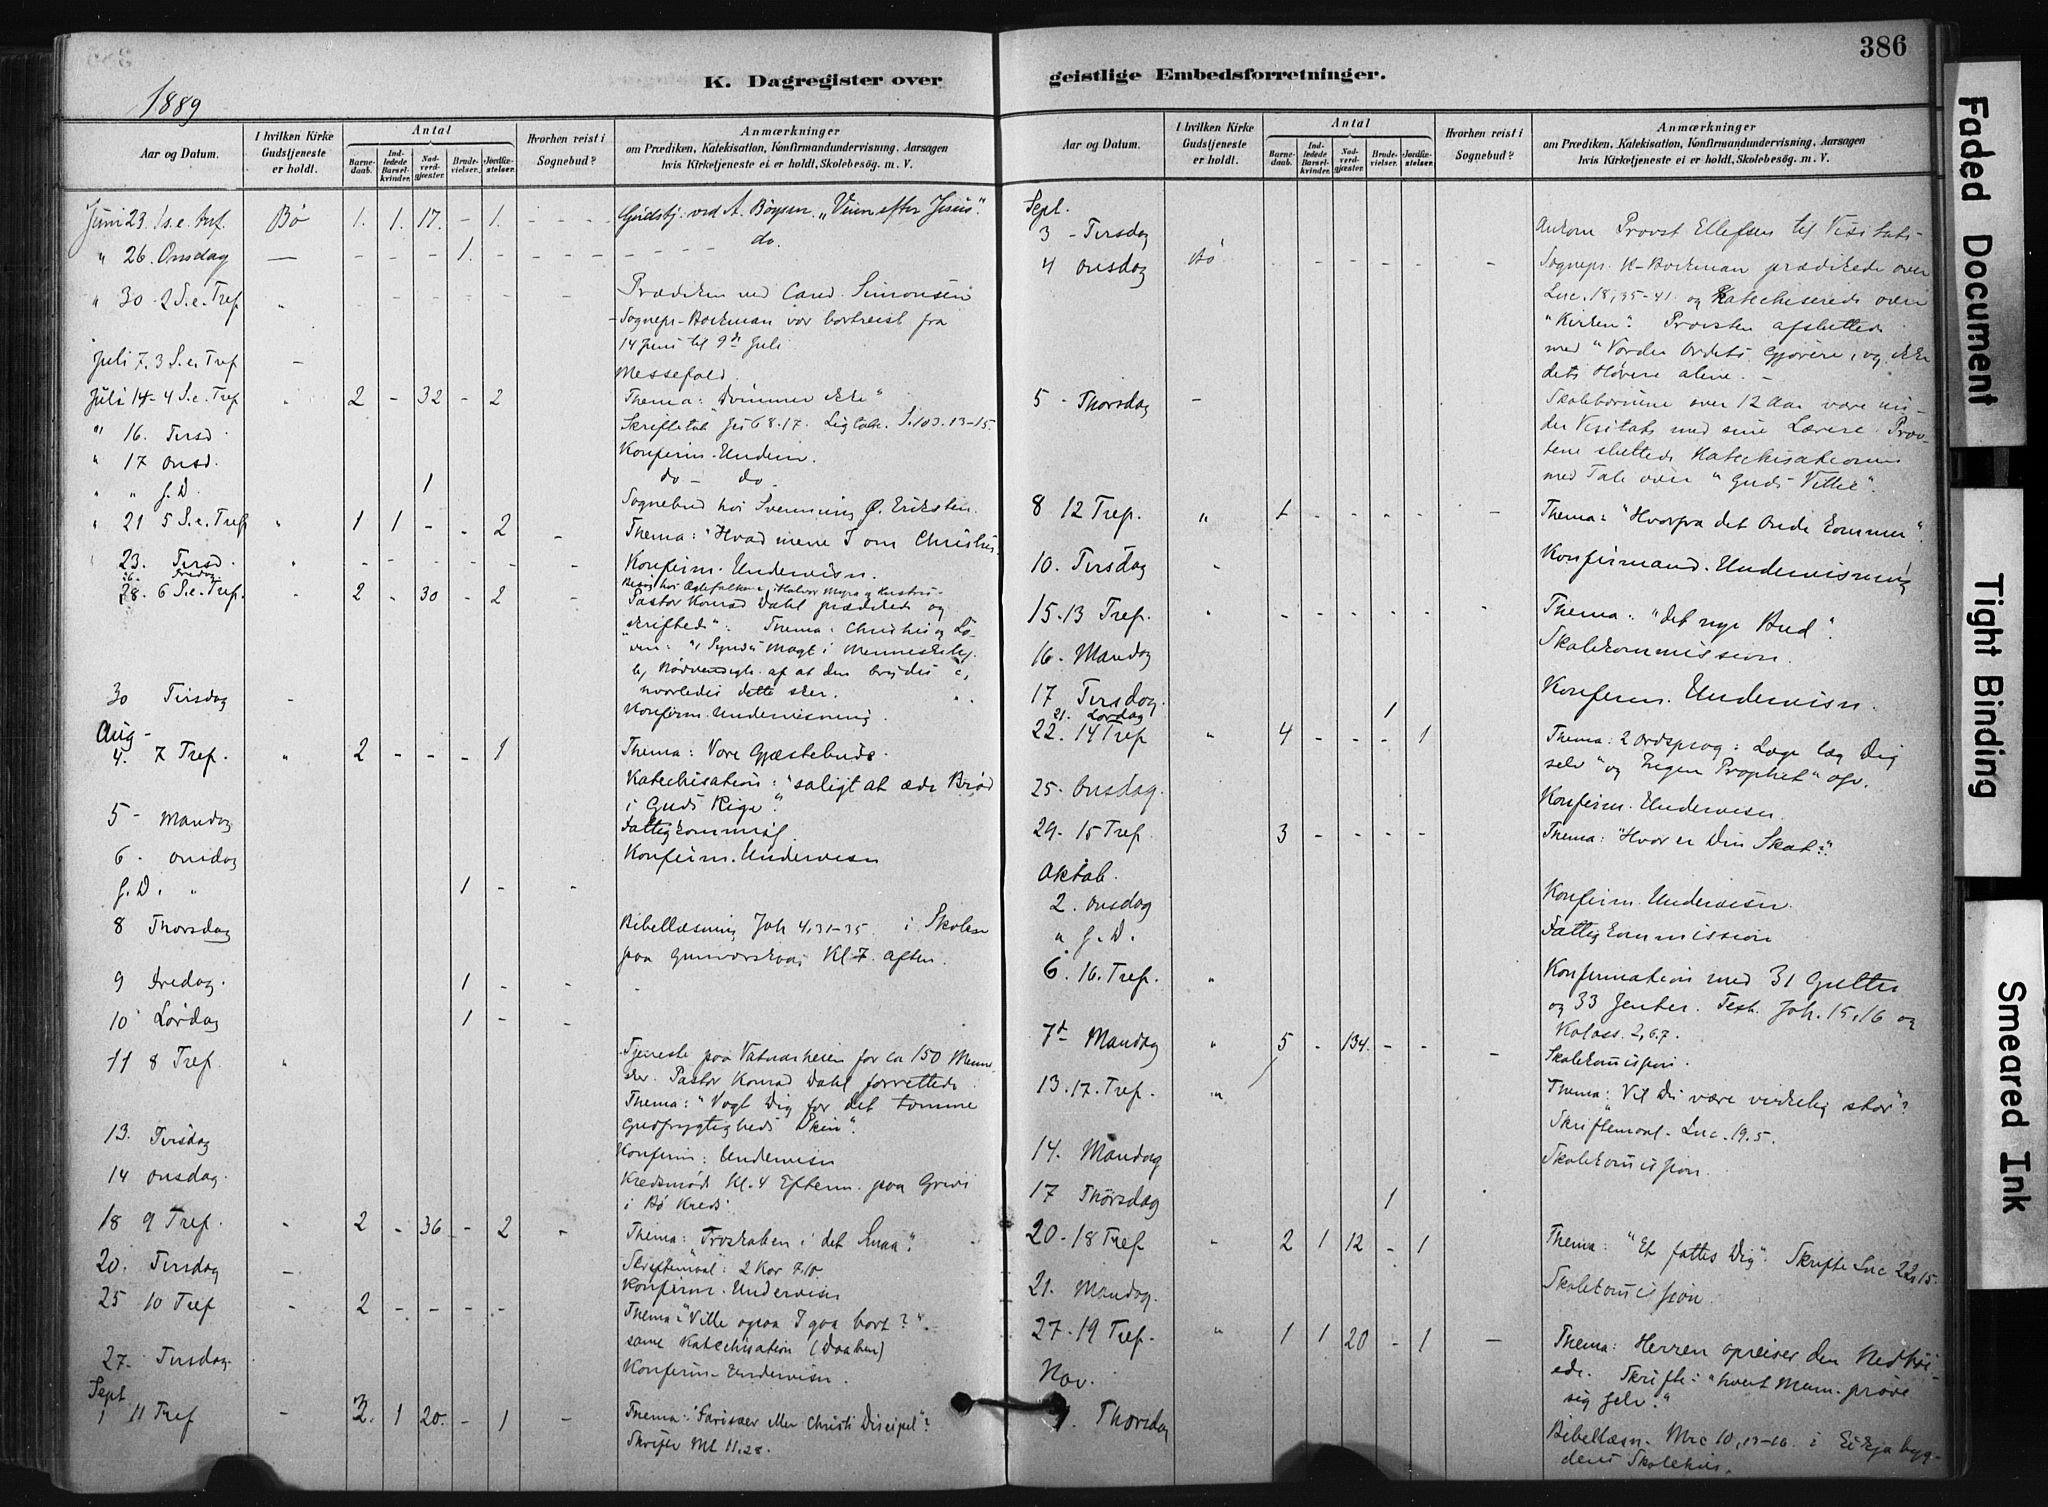 386
K. Dagregister over geistlige Embedsforretninger.
1889
Aar og Datum.
I hvilken Kirke Gudstjeneste er holdt.
Antal
Barnedaab.
Indledede Barselkvinder.
Nadverdgjæster.
Brudevielser.
Jordfæstelser.
Hvorhen reist i Sognebud?
Anmærkninger
om Prædiken, Katekisation, Konfirmandundervisning, Aarsagen
hvis Kirketjeneste ei er holdt, Skolebesøg. m. V.
Juni 23. 1 s. e. Bø 1. 1. 17. - 1. Gudstj. ved A. Bøysen. "Veien efter Jesus".
" 26. Onsdag — 1. do.
" 30 - 2 S. e. Tref. " Prædiken ved Cand. Simonsen
Sognepr. Bockman var bortreist fra
14 Juni til 9de Juli
Juli 7. 3 S. e. Tref — Messefald.
Juli 14 - 4 S. e. Tref " 2 - 32 - 2 Thema: "Dømmer ikke"
S. 103. 13-15.
" 16. Tirsd. Konfirm. Underv.
" 17 Onsd. do - do
" " s. D. 1 Sognebud hos Svenning Ø. Eriksten.
" 21 5 S. e. Tref " 1 1 - - 2 - Thema: "Hvad mene I om Christus.
23. Tirsd. " Konfirm. Undervisn.
26. Fredag
28. 6 S. e. Tref. " 2 - 30 - 2 Pastor Konrad Dahl prædikede og
skriftede". Thema: Christus og
Syndens Magt i
b, Nødvendigh. af at den brydes c,
hvorledes dette sker.
30 Tirsdag - Konfirm. Undervisning.
Aug -
4. 7 Tref. " 2 - - - 1 Thema: Vore Gjæstebude.
Katechisation: "saligt at æde Brød
i Guds Rige".
5 - Mandag Fattigkommis.
6. Onsdag Konfirm. Undervisn
s. D. " 1 - -
8 Thorsdag Bibellæsning Joh 4, 31-35 i Skolen
paa Gunvorskaas Kl 7. aften.
9 Fredag. 1 - - -
10 Lørdag 1 - -
11 8 Tref. " Tjeneste paa Vatnarheien for ca 150 Menne-
sker. Pastor Konrad Dahl forrettede.
Thema: "Vogt Dig for det tomme
Gudfrygtigheds Skin".
13. Tirsdag Konfirm: Undervisn
14 Onsdag. Kredsmøde Kl. 4 Efterm. paa Grivi
i Bø Kreds.
18 9 Tref. - 2 - 36 - 2 - Thema: Troskaben i det Smaa".
Skriftemaal: 2 Kor 7.10.
20. Tirsdag — Konfirm. Undervisn
25 10 Tref - 2 - - - - Thema: "Ville ogsaa I gaa bort?".
samt Katechisation (Daaben)
27. Tirsdag. Konfirm. Undervisn.
Sept
1 11 Tref - 3. 1 20. - 1 - Thema: "Farisæer eller Christi Discipel"?
Skrifte Mt 11.28.
Aar og Datum.
I hvilken Kirke Gudstjeneste er holdt.
Antal
Barnedaab.
Indledede Barselkvinder.
Nadverdgjæster.
Brudevielser.
Jordfæstelser.
Hvorhen reist i Sognebud?
Anmærkninger
om Prædiken, Katekisation, Konfirmandundervisning, Aarsagen
hvis Kirketjeneste ei er holdt, Skolebesøg. m. V.
Sept.
3 - Tirsdag Ankom Provst Ellefsen til Visitats -
4 Onsdag Bø - Sognepr. Bockman prædikede over
Luc. 18, 35-41. og Katechiserede over
"Kirken". Provsten afsluttede
med "Vorder Ordets Gjørere, og ikke
dets Hørere alene. -
5 - Thorsdag - Skolebørnene over 12 Aar vare un-
der Visitats med sine Lærere. Prov-
sten sluttede Katechisationen
med Tale over "Guds Villie".
8 12 Tref. " 1 - - - - - Thema: "Hvorfra det Onde kommer".
10. Tirsdag " Konfirmand. Undervisning
15. 13 Tref. " - - - - - Thema: "det nye Bud".
16. Mandag Skolekommission.
17 Tirsdag. Konfirm. Undervisn.
21. Lørdag 1
22. 14 Tref " 4 - - - 1 Thema: 2 Ordsprog: Læge læg Dig
selv" og "Ingen Prophet" osv.
25. Onsdag. Konfirm. Undervisn.
29. 15 Tref. 3 - - - - Thema: "Hvor er Din Skat?".
Oktob.
2. Onsdag Konfirm. Undervisn.
" s. D. Fattigkommission
6. 16. Tref. " Konfirmation med 31 Gutter
og 33 Jenter. Text. Joh. 15, 16 og
Koloss. 2, 6.7.
7d Mandag " 5 - 134. - - - Skolekommission.
13. 17. Tref. " Thema: "Vil Du være virkelig stor"?
Skriftemaal. Luc. 19.5.
14. Mandag Skolekommission.
17 Thorsdag 1
20 - 18 Tref " 2 1 12 - 1 Thema: "Et fattes Dig". Skrifte Luc 22, 15.
21. Mandag. Skolekommission
27 - 19 Tref. " 1 1 20 - 1 - Thema: Herren opreiser den Nedbøi-
ede. Skrifte: "hvert Mennˌ prøve
sig selv."
Nov.
7. Thorsdag Bibellæsn. Mrc 10, 13-16. i Eikjabyg-
dens Skolehus.
Faded Document
Tight Binding
Smeared Ink